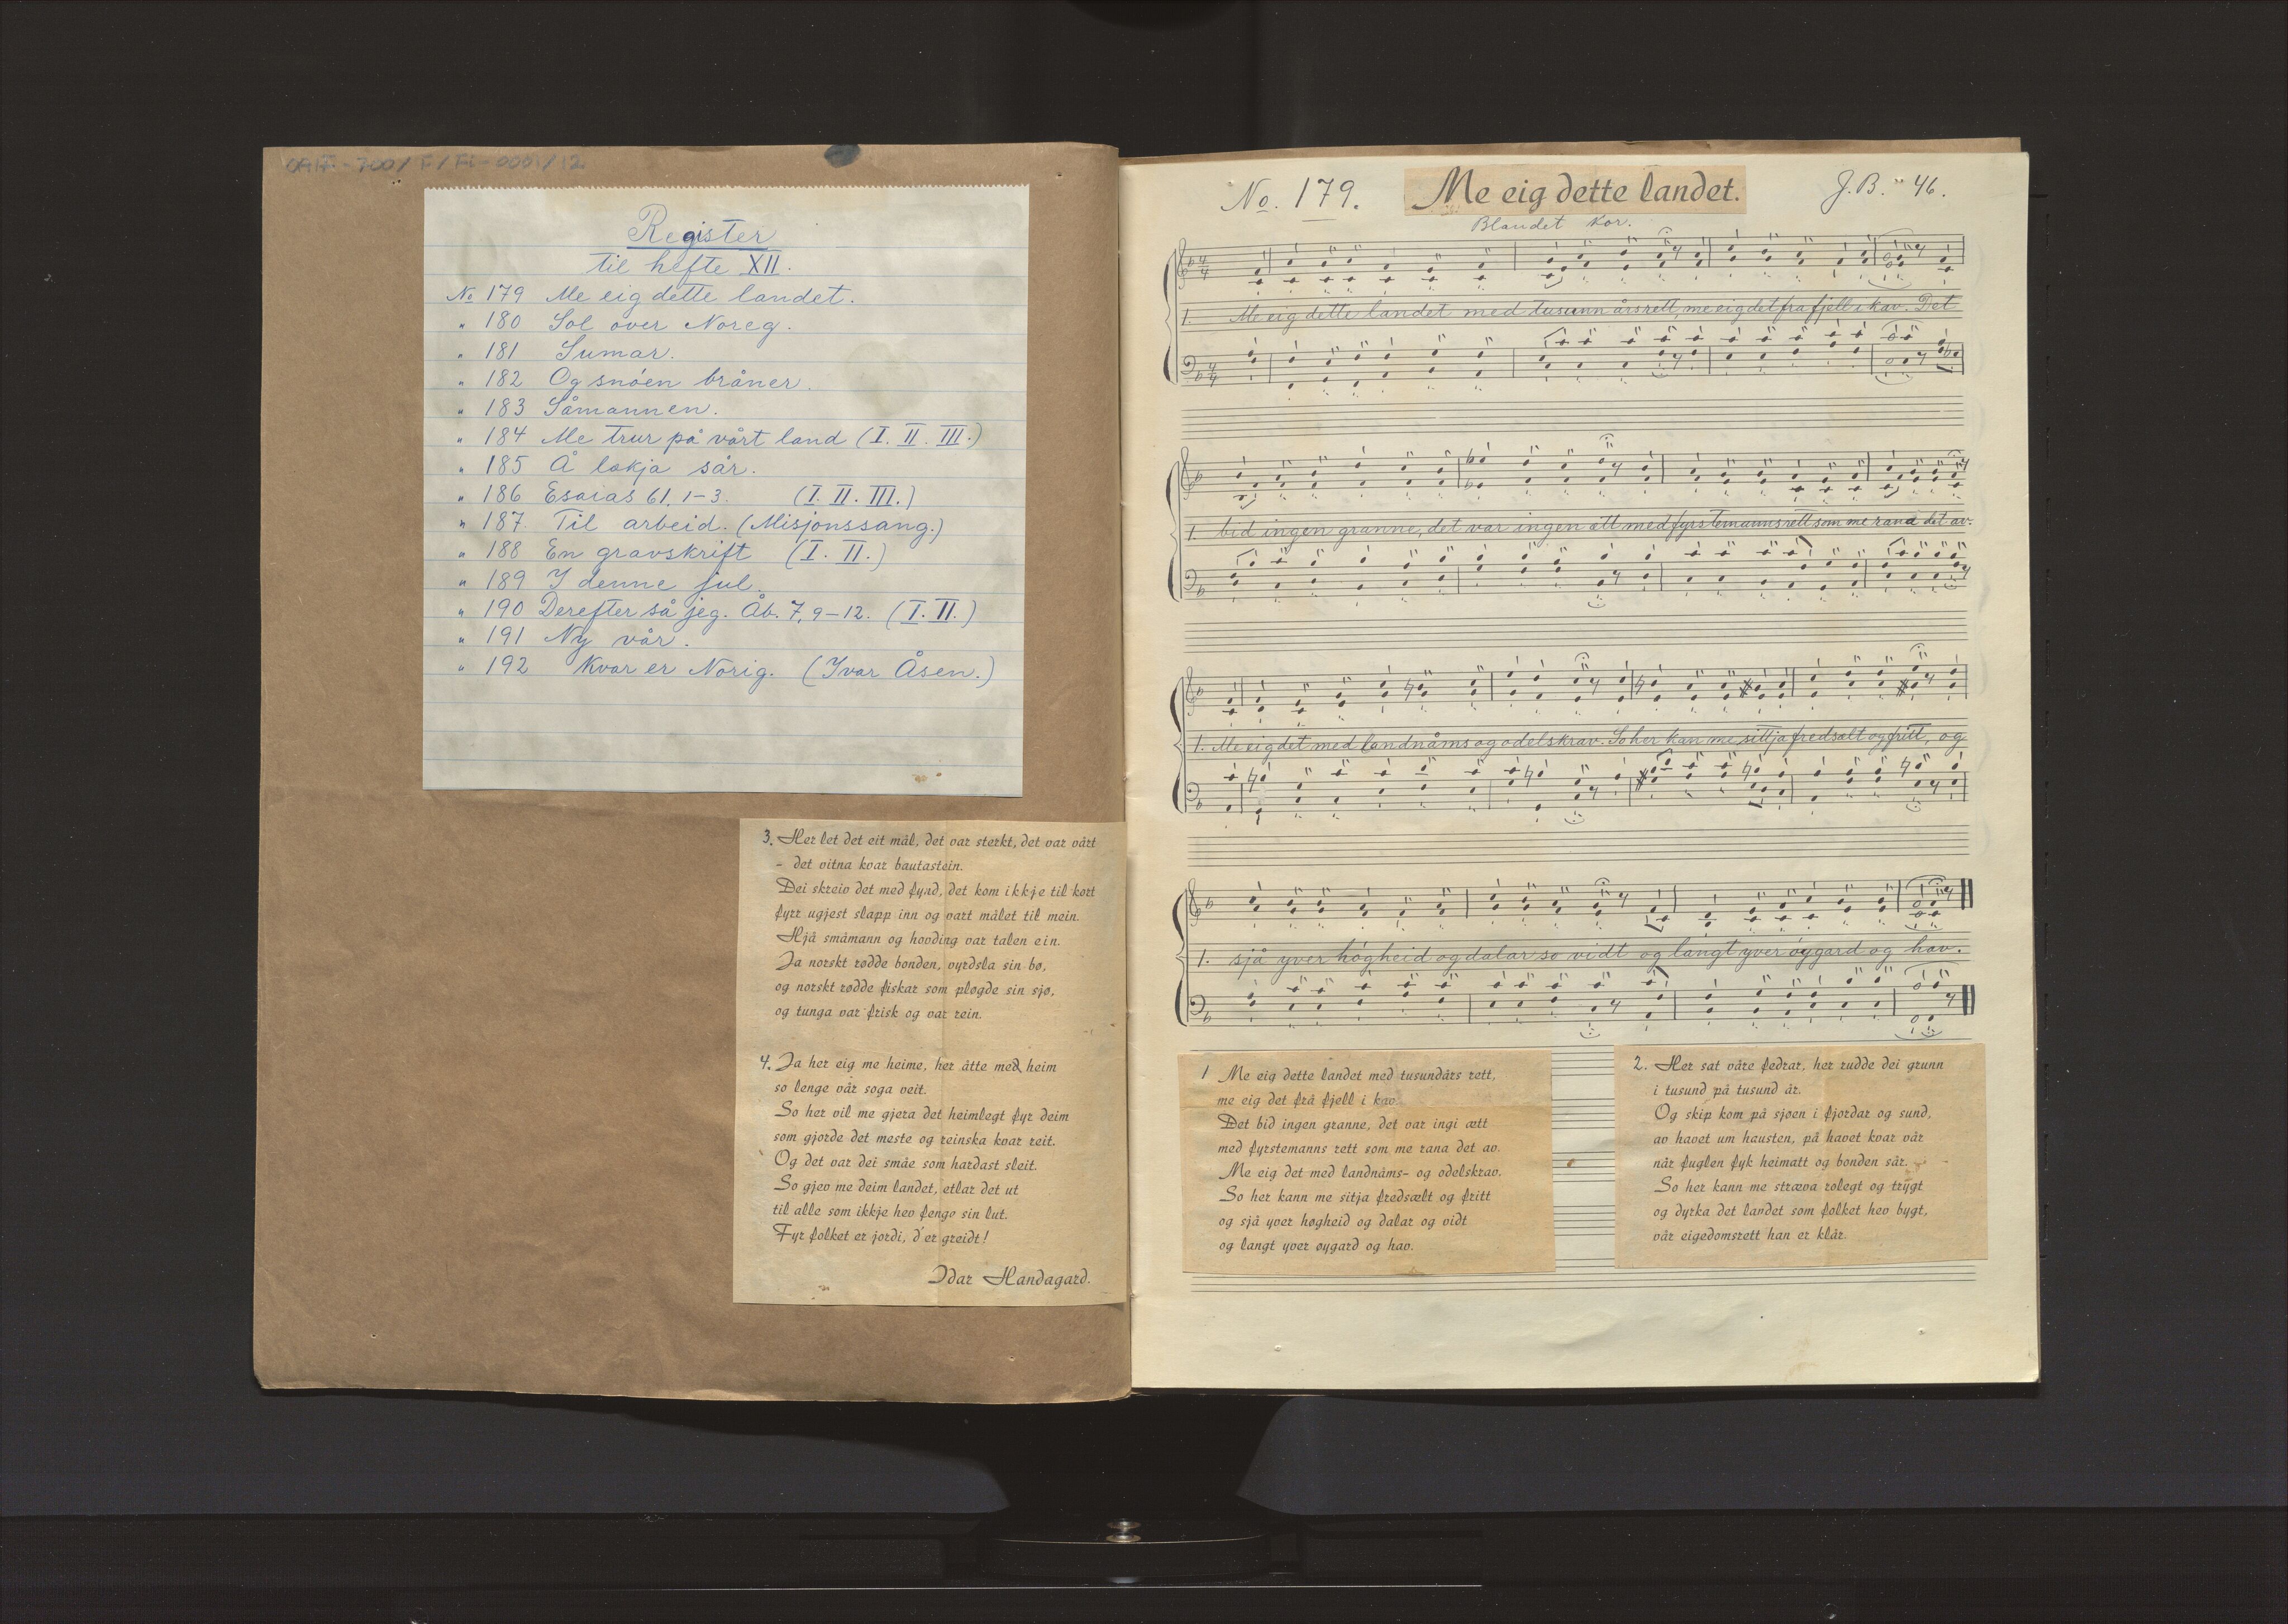 Register
til hefte XII.
No 179 Me eig dette landet.
" 180 Sol over Noreg.
" 181 Sumar.
" 182 Og snóen bråner.
" 183 Såmannen.
" 184 Me trur på vårt land (I. II. III.)
" 185 Å lækja sår.
" 186 Esaias 61, 1-3. (I. II. III.)
" 187. Til arbeid. (Misjonssang.)
" 188 En gravskrift (I. II.)
" 189 I denne jul.
" 190 Derefter så jeg. Åb. 7, 9-12. (I. II.)
" 191 Ny vår.
" 192 Kvar er Norig. (Ivar Åsen.)
3. Her let det eit mål, det var sterkt, det var vårt
- det vitna kvar bautastein.
Dei skreiv det med fynd, det kom ikkje til kort
fyrr ugjest slapp inn og vart målet til mein.
Hjå småmann og hovding var talen ein.
Ja norskt rødde bonden, vyrdsla sin bø,
og norskt rødde fiskar som pløgde sin sjø,
og tunga var frisk og var rein.
4. Ja her eig me heime, her åtte med heim
so lenge vår soga veit.
So her vil me gjera det heimlegt fyr deim
som gjorde det meste og reinska kvar reit.
Og det var dei småe som hardast sleit.
So gjev me deim landet, etlar det ut
til alle som ikkje hev fenge sin lut.
Fyr folket er jordi, d'er greidt!
Idar Handagard.
No. 179. Me eig dette landet. J.B. " 46.
Blandet Kor.
1. Me eig dette landet med tusunn årsrett, me eig det fra fjell i kav. Det
1. bid ingen granne, det var ingen ått med fyrstemannsrett som me rana det av.
1. Me eig det med landnåms og odelskrav. So her kan me sittja fredsalt og fritt, og
1. sjå yver högheid og dalar so vidt og langt yver öygard og hav.
1 Me eig dette landet med tusundårs rett,
me eig det frå fjell i kav.
Det bid ingen granne, det var ingi ætt
med fyrstemanns rett som me rana det av.
Me eig det med landnåms- og odelskrav.
So her kann me sitja fredsælt og fritt
og sjå yver høgheid og dalar og vidt
og langt yver øygard og hav.
2. Her sat våre fedrar, her rudde dei grunn
i tusund på tusund år.
Og skip kom på sjøen i fjordar og sund,
av havet um hausten, på havet kvar vår
når fuglen fyk heimatt og bonden sår.
So her kann me stræva rolegt og trygt
og dyrka det landet som folket hev bygt,
vår eigedomsrett han er klår.